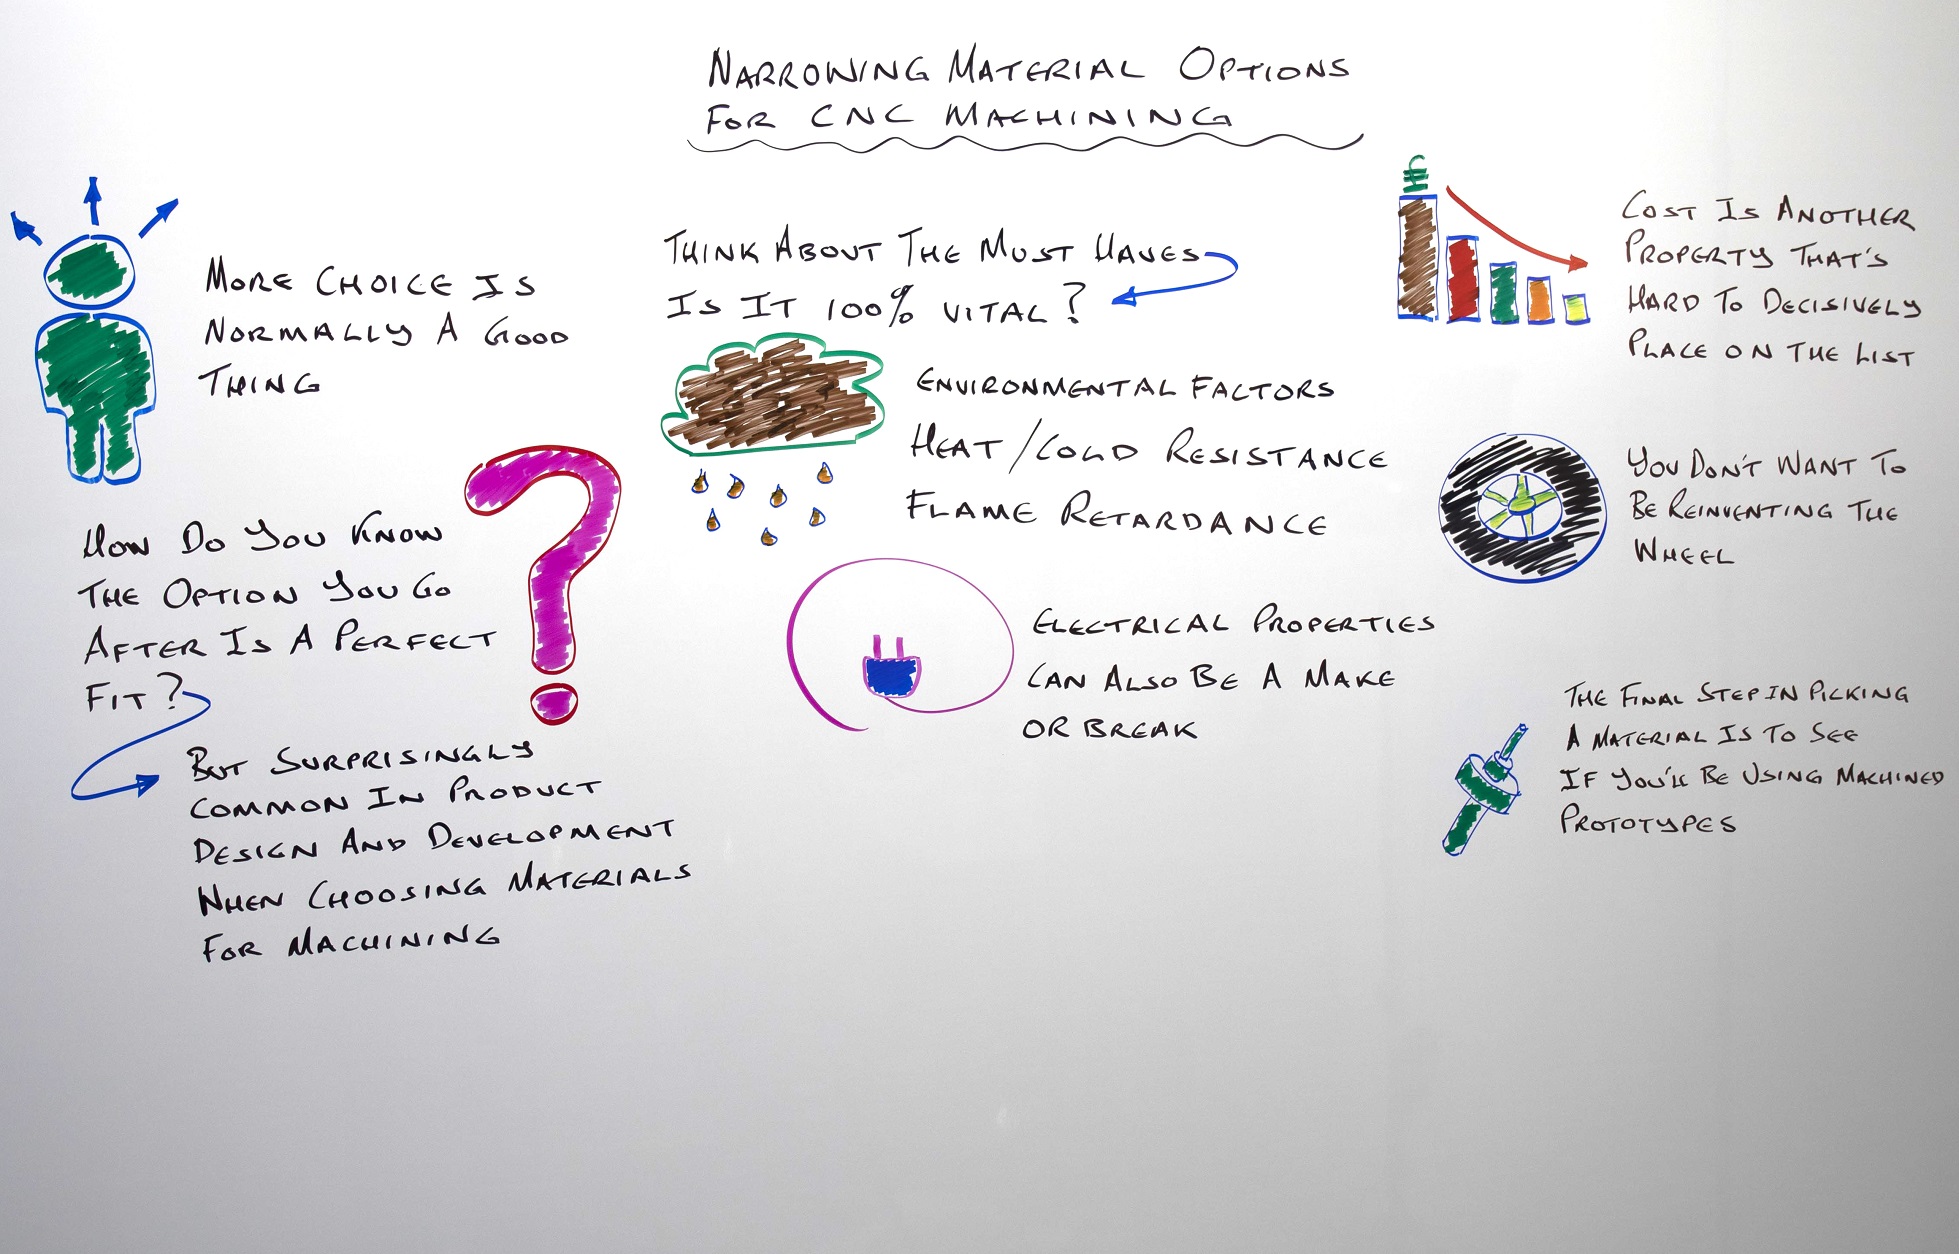 NARROWING MATERIAL OPTIONS
FOR CNC MACHINING
MORE CHOICE IS
NORMALLY A GOOD
THING
HOW DO YOU KNOW
THE OPTION YOU GO
AFTER IS A PERFECT
FIT?
BUT SURPRISINGLY
COMMON IN PRODUCT
DESIGN AND DEVELOPMENT
WHEN CHOOSING MATERIALS
FOR MACHINING
THINK ABOUT THE MUST HAVES
IS IT 100% VITAL?
ENVIRONMENTAL FACTORS
HEAT/COLD RESISTANCE
FLAME RETARDANCE
ELECTRICAL PROPERTIES
CAN ALSO BE A MAKE
OR BREAK
£
COST IS ANOTHER
PROPERTY THAT'S
HARD TO DECISIVELY
PLACE ON THE LIST
YOU DON'T WANT TO
BE REINVENTING THE
WHEEL
THE FINAL STEP IN PICKING
A MATERIAL IS TO SEE
IF YOU'LL BE USING MACHINED
PROTOTYPES